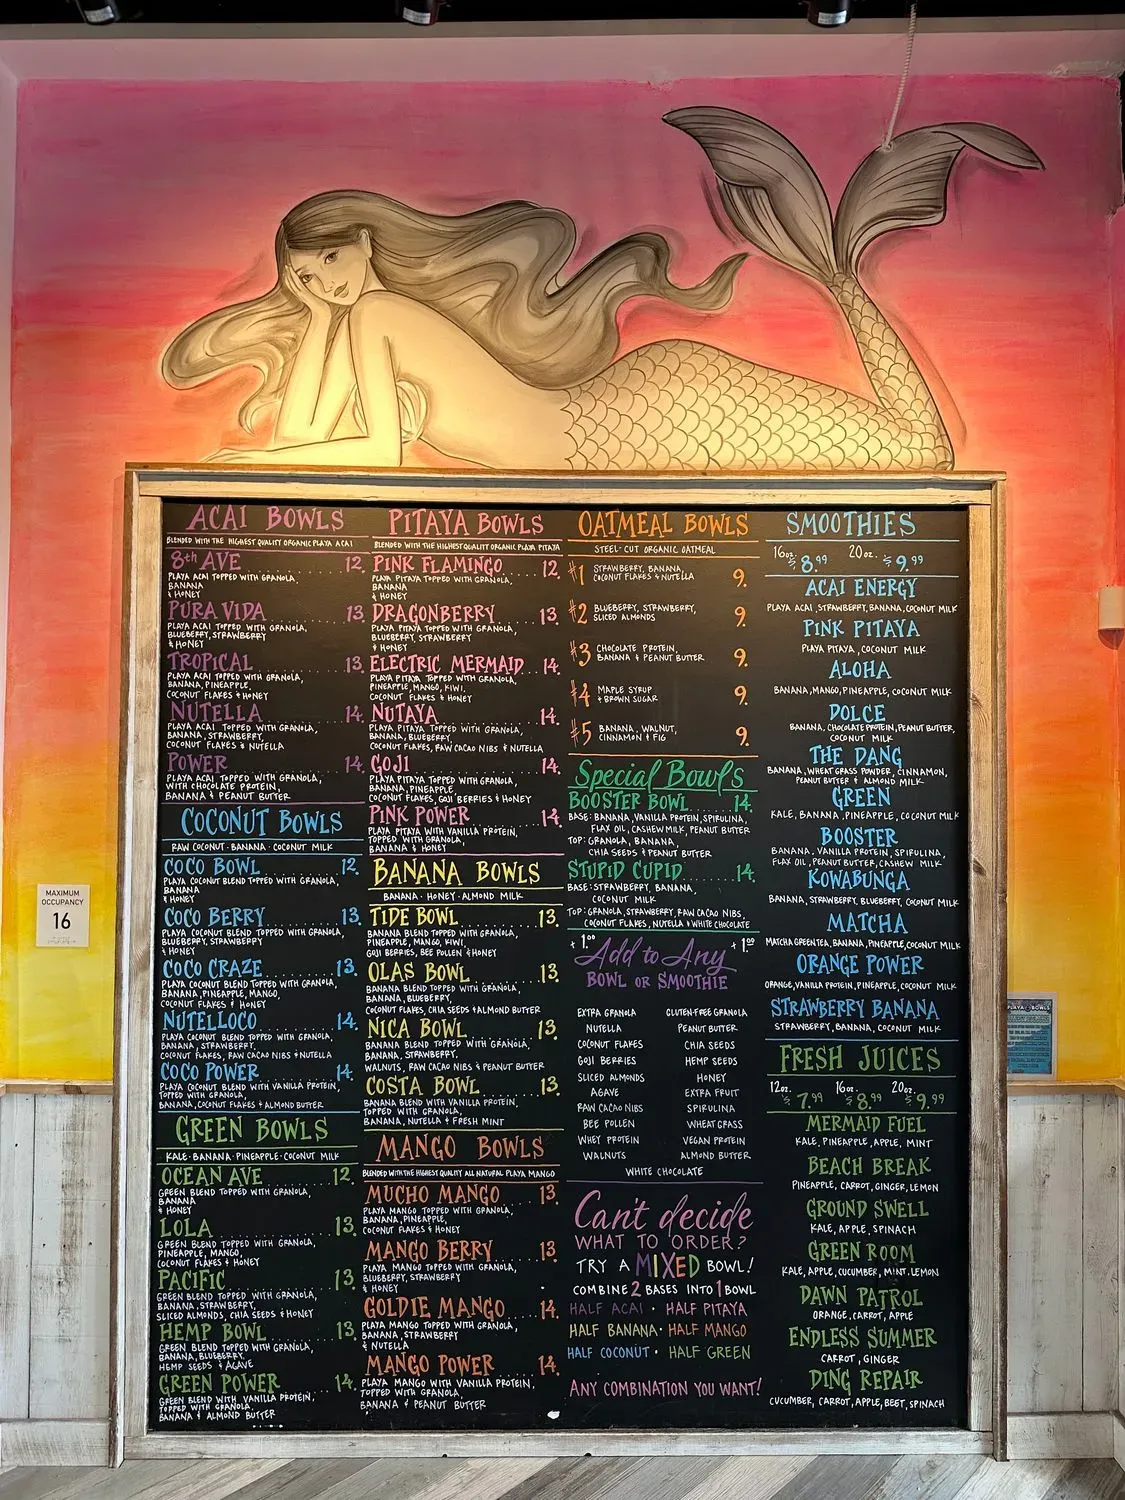 ACAI BOWLS
BLENDED WITH THE HIGHEST QUALITY ORGANIC PLAYA ACAI
8th AVE 12.
PLAYA ACAI TOPPED WITH GRANOLA,
BANANA
& HONEY
PURA VIDA 13.
PLAYA ACAI TOPPED WITH GRANOLA,
BLUEBERRY, STRAWBERRY
& HONEY
TROPICAL 13.
PLAYA ACAI TOPPED WITH GRANOLA,
BANANA, PINEAPPLE,
COCONUT FLAKES & HONEY
NUTELLA 14.
PLAYA ACAI TOPPED WITH GRANOLA,
BANANA, STRAWBERRY,
COCONUT FLAKES & NUTELLA
POWER 14.
PLAYA ACAI TOPPED WITH GRANOLA,
WITH CHOCOLATE PROTEIN,
BANANA & PEANUT BUTTER
COCONUT BOWLS
RAW COCONUT · BANANA · COCONUT MILK
COCO BOWL 12.
PLAYA COCONUT BLEND TOPPED WITH GRANOLA,
BANANA
& HONEY
COCO BERRY 13.
PLAYA COCONUT BLEND TOPPED WITH GRANOLA,
BLUEBERRY, STRAWBERRY
& HONEY
COCO CRAZE 13.
PLAYA COCONUT BLEND TOPPED WITH GRANOLA,
BANANA, PINEAPPLE, MANGO,
COCONUT FLAKES & HONEY
NUTELLOCO 14.
PLAYA COCONUT BLEND TOPPED WITH GRANOLA,
BANANA, STRAWBERRY,
COCONUT FLAKES, RAW CACAO NIBS & NUTELLA
COCO POWER 14.
PLAYA COCONUT BLEND WITH VANILLA PROTEIN,
TOPPED WITH GRANOLA,
BANANA, COCONUT FLAKES & ALMOND BUTTER
GREEN BOWLS
KALE · BANANA · PINEAPPLE · COCONUT MILK
OCEAN AVE 12.
GREEN BLEND TOPPED WITH GRANOLA,
BANANA
& HONEY
LOLA 13.
GREEN BLEND TOPPED WITH GRANOLA,
PINEAPPLE, MANGO,
COCONUT FLAKES & HONEY
PACIFIC 13.
GREEN BLEND TOPPED WITH GRANOLA,
BANANA, STRAWBERRY,
SLICED ALMONDS, CHIA SEEDS & HONEY
HEMP BOWL 13.
GREEN BLEND TOPPED WITH GRANOLA,
BANANA, BLUEBERRY,
HEMP SEEDS & AGAVE
GREEN POWER 14.
GREEN BLEND WITH VANILLA PROTEIN,
TOPPED WITH GRANOLA,
BANANA & ALMOND BUTTER
PITAYA BOWLS
BLENDED WITH THE HIGHEST QUALITY ORGANIC PLAYA PITAYA
PINK FLAMINGO 12.
PLAYA PITAYA TOPPED WITH GRANOLA,
BANANA
& HONEY
DRAGONBERRY 13.
PLAYA PITAYA TOPPED WITH GRANOLA,
BLUEBERRY, STRAWBERRY
& HONEY
ELECTRIC MERMAID 14.
PLAYA PITAYA TOPPED WITH GRANOLA,
PINEAPPLE, MANGO, KIWI,
COCONUT FLAKES & HONEY
NUTAYA 14.
PLAYA PITAYA TOPPED WITH GRANOLA,
BANANA, BLUEBERRY,
COCONUT FLAKES, RAW CACAO NIBS & NUTELLA
GOJI 14.
PLAYA PITAYA TOPPED WITH GRANOLA,
BANANA, PINEAPPLE,
COCONUT FLAKES, GOJI BERRIES & HONEY
PINK POWER 14.
PLAYA PITAYA WITH VANILLA PROTEIN,
TOPPED WITH GRANOLA,
BANANA & HONEY
BANANA BOWLS
BANANA · HONEY · ALMOND MILK
TIDE BOWL 13.
BANANA BLEND TOPPED WITH GRANOLA,
PINEAPPLE, MANGO, KIWI,
GOJI BERRIES, BEE POLLEN & HONEY
OLAS BOWL 13.
BANANA BLEND TOPPED WITH GRANOLA,
BANANA, BLUEBERRY,
COCONUT FLAKES, CHIA SEEDS & ALMOND BUTTER
NICA BOWL 13.
BANANA BLEND TOPPED WITH GRANOLA,
BANANA, STRAWBERRY,
WALNUTS, RAW CACAO NIBS & PEANUT BUTTER
COSTA BOWL 13.
BANANA BLEND WITH VANILLA PROTEIN,
TOPPED WITH GRANOLA,
BANANA, NUTELLA & FRESH MINT
MANGO BOWLS
BLENDED WITH THE HIGHEST QUALITY ALL NATURAL PLAYA MANGO
MUCHO MANGO 13.
PLAYA MANGO TOPPED WITH GRANOLA,
BANANA, PINEAPPLE,
COCONUT FLAKES & HONEY
MANGO BERRY 13
PLAYA MANGO TOPPED WITH GRANOLA,
BLUEBERRY, STRAWBERRY
& HONEY
GOLDIE MANGO 14.
PLAYA MANGO TOPPED WITH GRANOLA,
BANANA, STRAWBERRY
& NUTELLA
MANGO POWER 14.
PLAYA MANGO WITH VANILLA PROTEIN,
TOPPED WITH GRANOLA,
BANANA & PEANUT BUTTER
OATMEAL BOWLS
STEEL-CUT ORGANIC OATMEAL
#1 STRAWBERRY, BANANA,
COCONUT FLAKES & NUTELLA 9.
#2 BLUEBERRY, STRAWBERRY,
SLICED ALMONDS 9.
#3 CHOCOLATE PROTEIN,
BANANA & PEANUT BUTTER 9.
#4 MAPLE SYRUP
& BROWN SUGAR 9.
#5 BANANA, WALNUT,
CINNAMON & FIG 9.
Special Bowls
BOOSTER BOWL 14.
BASE: BANANA, VANILLA PROTEIN, SPIRULINA,
FLAX OIL, CASHEW MILK, PEANUT BUTTER
TOP: GRANOLA, BANANA,
CHIA SEEDS & PEANUT BUTTER
STUPID CUPID 14.
BASE: STRAWBERRY, BANANA,
COCONUT MILK
TOP: GRANOLA, STRAWBERRY, RAW CACAO NIBS,
COCONUT FLAKES, NUTELLA & WHITE CHOCOLATE
+ 1.00 Add to Any + 1.00
BOWL OR SMOOTHIE
EXTRA GRANOLA GLUTEN-FREE GRANOLA
NUTELLA PEANUT BUTTER
COCONUT FLAKES CHIA SEEDS
GOJI BERRIES HEMP SEEDS
SLICED ALMONDS HONEY
AGAVE EXTRA FRUIT
RAW CACAO NIBS SPIRULINA
BEE POLLEN WHEATGRASS
WHEY PROTEIN VEGAN PROTEIN
WALNUTS ALMOND BUTTER
WHITE CHOCOLATE
Can't decide
WHAT TO ORDER?
TRY A MIXED BOWL!
COMBINE 2 BASES INTO 1 BOWL
HALF ACAI · HALF PITAYA
HALF BANANA · HALF MANGO
HALF COCONUT · HALF GREEN
ANY COMBINATION YOU WANT!
SMOOTHIES
16oz. $8.99 20oz. $9.99
ACAI ENERGY
PLAYA ACAI, STRAWBERRY, BANANA, COCONUT MILK
PINK PITAYA
PLAYA PITAYA, COCONUT MILK
ALOHA
BANANA, MANGO, PINEAPPLE, COCONUT MILK
DOLCE
BANANA, CHOCOLATE PROTEIN, PEANUT BUTTER,
COCONUT MILK
THE DANG
BANANA, WHEAT GRASS POWDER, CINNAMON,
PEANUT BUTTER & ALMOND MILK
GREEN
KALE, BANANA, PINEAPPLE, COCONUT MILK
BOOSTER
BANANA, VANILLA PROTEIN, SPIRULINA,
FLAX OIL, PEANUT BUTTER, CASHEW MILK
KOWABUNGA
BANANA, STRAWBERRY, BLUEBERRY, COCONUT MILK
MATCHA
MATCHA GREEN TEA, BANANA, PINEAPPLE, COCONUT MILK
ORANGE POWER
ORANGE, VANILLA PROTEIN, PINEAPPLE, COCONUT MILK
STRAWBERRY BANANA
STRAWBERRY, BANANA, COCONUT MILK
FRESH JUICES
12oz. $7.99 16oz. $8.99 20oz. $9.99
MERMAID FUEL
KALE, PINEAPPLE, APPLE, MINT
BEACH BREAK
PINEAPPLE, CARROT, GINGER, LEMON
GROUND SWELL
KALE, APPLE, SPINACH
GREEN ROOM
KALE, APPLE, CUCUMBER, MINT, LEMON
DAWN PATROL
ORANGE, CARROT, APPLE
ENDLESS SUMMER
CARROT, GINGER
DING REPAIR
CUCUMBER, CARROT, APPLE, BEET, SPINACH
MAXIMUM
OCCUPANCY
16
PLAYA BOWLS